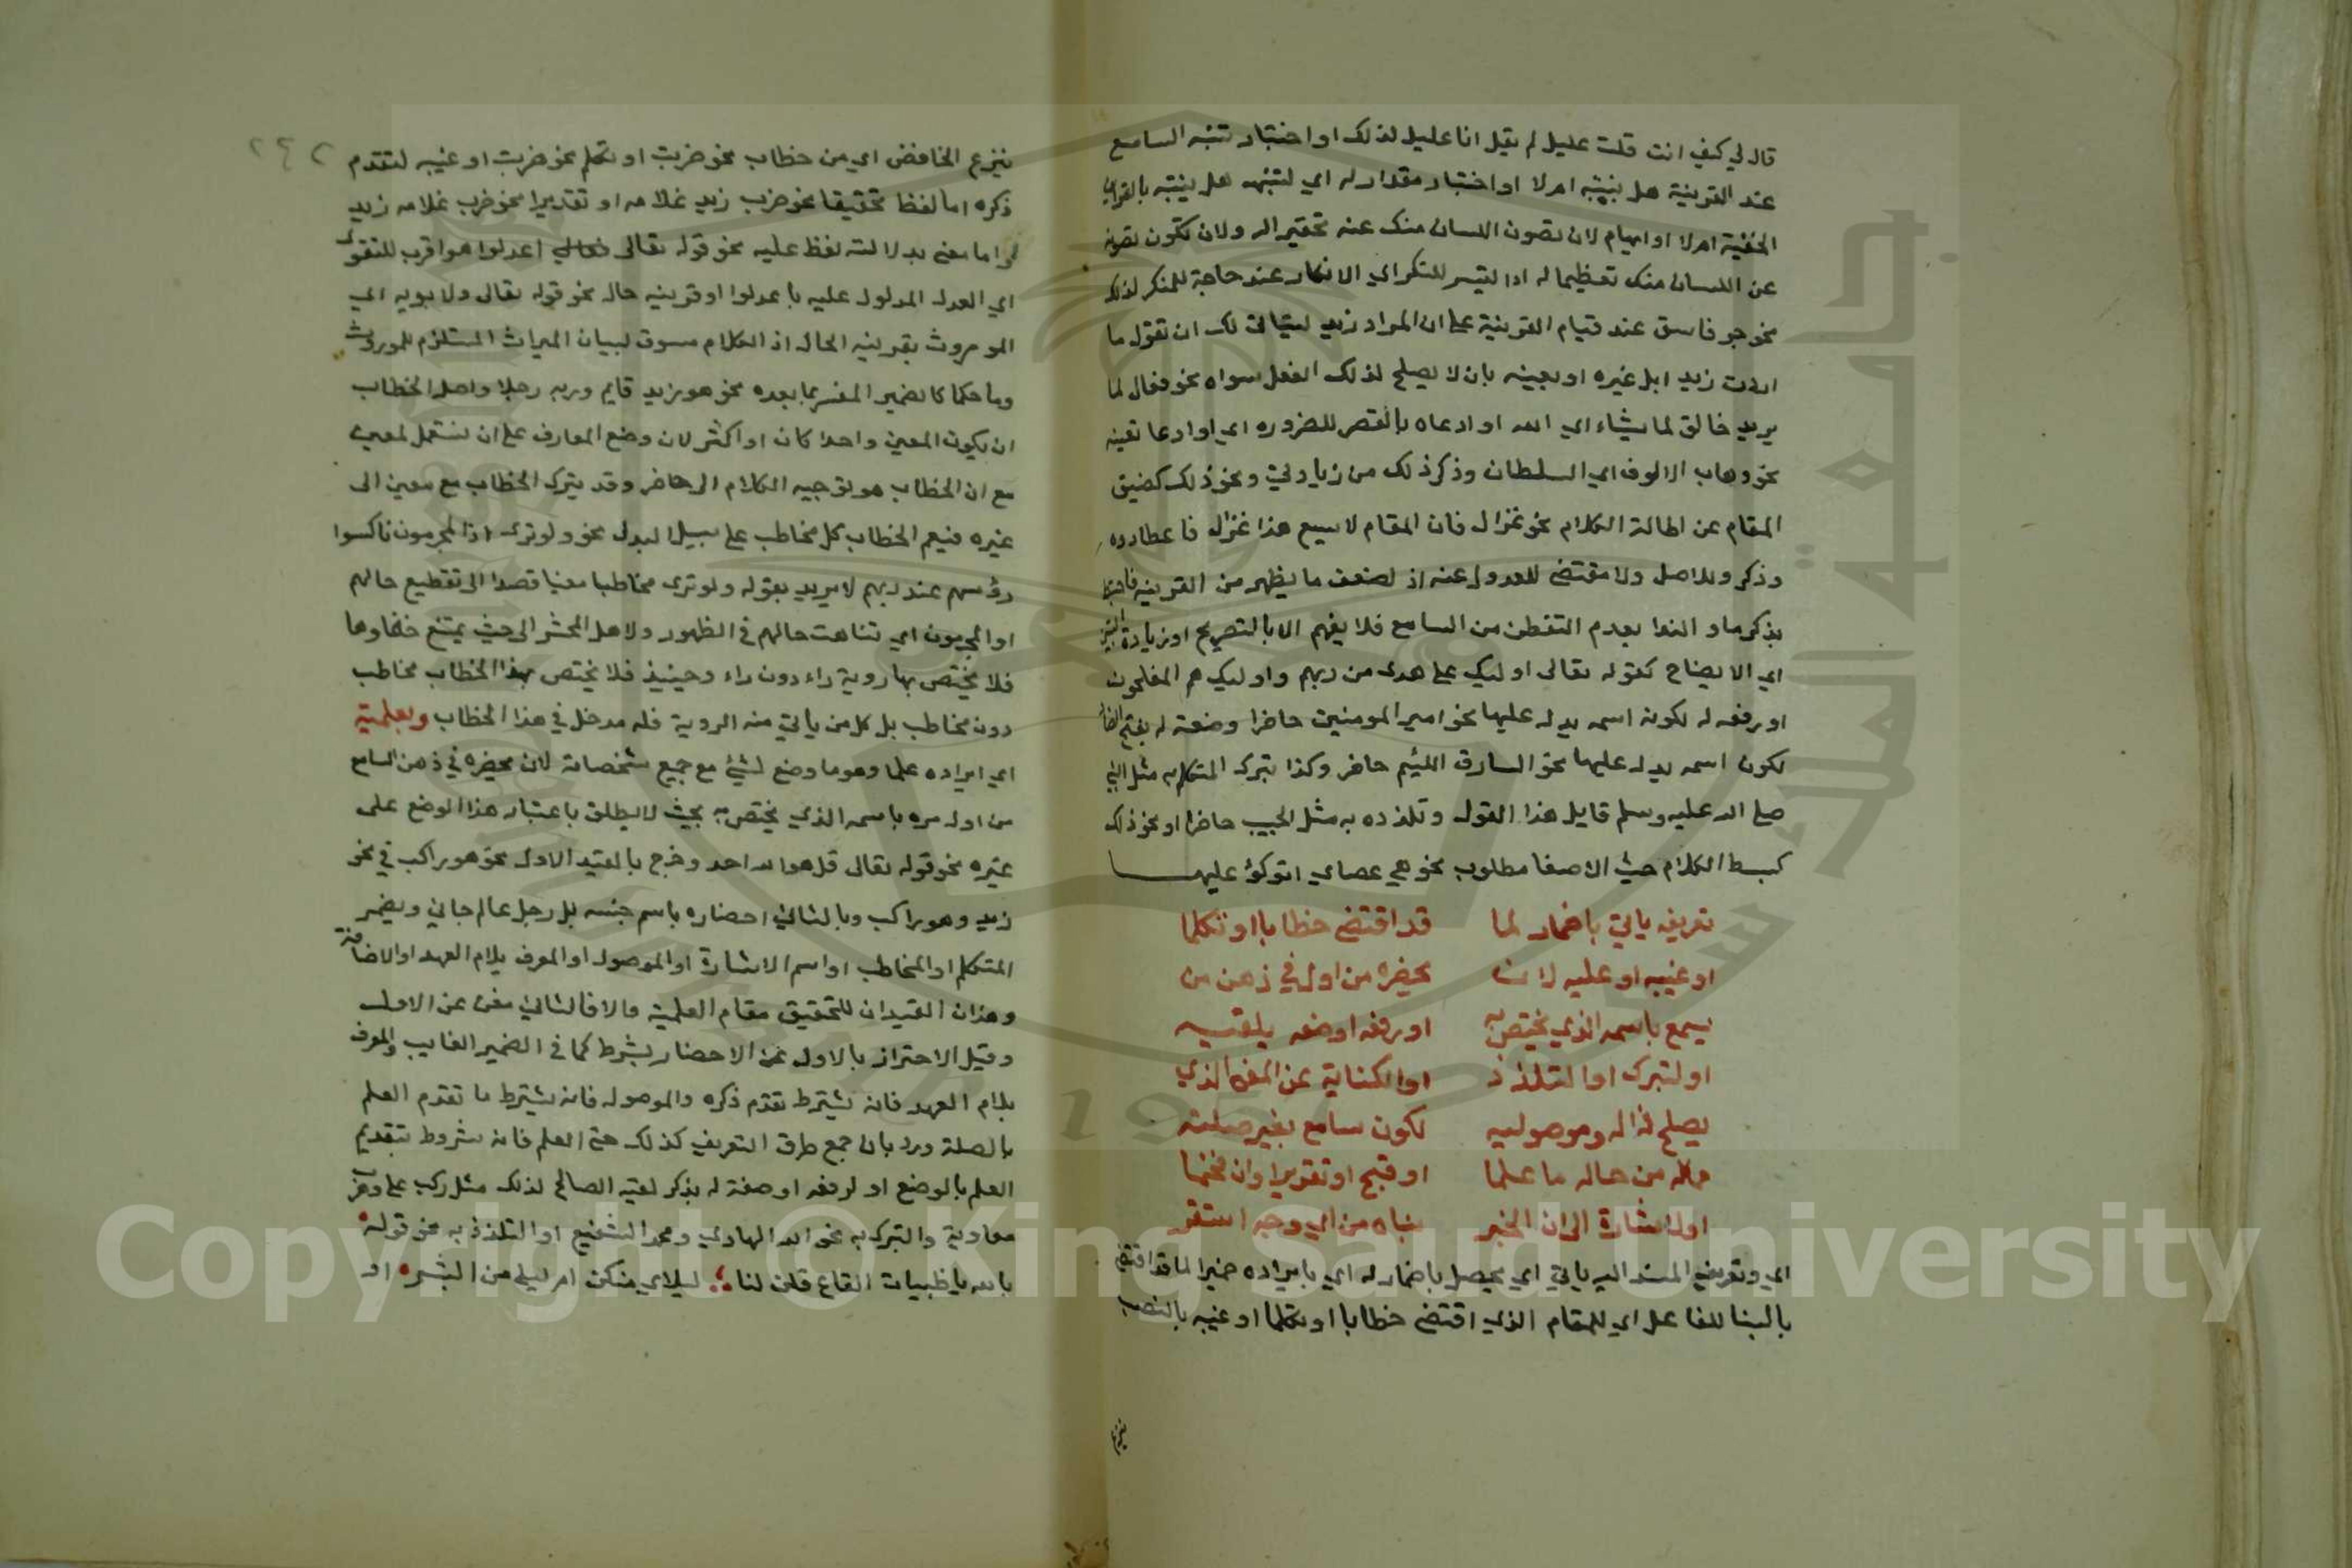 قال لي كيف انت قلت عليل لم يقل انا عليل لذلك او اختبار تنبه السامع
عند القرينة هل يتنبه ام لا او اختبار مقدار له اي لتنبهه هل يتنبه بالقراين
الخفية ام لا او ايهام لان تصون اللسان منك عنه تحقيرا له ولان تكون تصونه
عن اللسان منك تعظيما له او لتيسر للنكر اي الانكار عند حاجة للمنكر لذلك
نحو جو فاسق عند قيام القرينة على ان المراد زيد ليتاتى لك ان تقول ما
اردت زيد ابل غيره او تعينه بان لا يصلح لذلك الفعل سواه نحو فعال لما
يريد خالق لما يشاء اي الله او ادعاه بالقصر للضروره اي او ادعا تعينه
نحو وهاب الالوف اي السلطان وذكر ذلك من زيادتي ونحو ذلك كضيق
المقام عن اطالة الكلام نحو غزال فان المقام لا يسع هذا غزال فاصطادوه
وذكره للاصل ولا مقتضى للعدول عنه اذ لضعف ما يظهر من القرينه
بذكرها و الندا بعدم التفطن من السامع فلا يفهم الا بالتصريح او زيادة
اي الايضاح كقوله تعالى اوليك على هدى من ربهم واوليك هم المفلحون
او رفعه له لكون اسمه يدل عليها نحو امير المومنين حاضرا وضعته له بفتح الضاد
لكون اسمه يدل عليها نحو السارق اللئيم حاضر وكذا تبرك المتكلم به مثل النبي
صلى الله عليه وسلم قايل هذا القول وتلذذه به مثل الحبيب حاضرا او نحو ذلك
كبسط الكلام حيث الاصغا مطلوب نحو هي عصاي اتوكؤ عليها
تعريفه ياتي باضمار لما قد اقتضى خطابا او تكلما
او غيبه او علميه لان يحضره من اول في ذهن من
يسمع باسمه الذي يختص به او رفعه او ضعه بلقبه
او لتبرك او التلذذ او الكناية عن المعنى الذي
يصلح ذا له وموصوليه لكون سامع بغير صلته
ماله من حاله ما علما او قبح او تقريرا وان فخما
او لاشارة الى ان الخبر بناه من اي وجه استقر
اي وتعريف المسند اليه ياتي اي يحصل باضمار له اي بايراده ضميرا لما قد اقتضى
بالبنا للفاعل اي للمقام الذي اقتضى خطابا او تكلما او غيبه بالنصب
بنزع
٢٤٢
بنزع الخافض اي من خطاب نحو ضربت او تكلم نحو ضربت او غيبه لتقدم
ذكره اما لفظا تحقيقا نحو ضرب زيد غلامه او تقديرا نحو ضرب غلامه زيد
واما معنى بدلالته لفظ عليه نحو قوله تعالى اعدلوا هو اقرب للتقوى
اي العدل المدلول عليه باعدلوا او قرينه حال نحو قوله تعالى ولابويه اي
الموروث بقرينه الحال اذ الكلام مسوق لبيان الميراث المستلزم للموروث
وما حكما كالضمير المفسر بما بعده نحو هو زيد قايم وربه رجلا واصل الخطاب
ان يكون لمعين واحدا كان او اكثر لان وضع المعارف على ان تستعمل لمعين
مع ان الخطاب هو توجيه الكلام الى حاضر وقد يترك الخطاب مع معين الى
غيره فيعم الخطاب كل مخاطب على سبيل البدل نحو ولو ترى اذ المجرمون ناكسوا
رؤسهم عند ربهم لا يريد بقوله ولو ترى مخاطبا معينا قصدا الى تفظيع حالهم
او المجرمون اي تناهت حالهم في الظهور ولاهل المحشر الى حيث يمتنع خفاوها
فلا يختص بها روية راء دون راء وحينيذ فلا يختص بهذا الخطاب مخاطب
دون مخاطب بل كل من ياتي منه الروية فله مدخل في هذا الخطاب وبعلمية
اي ايراده علما وهو ما وضع لشئ مع جميع مشخصاته لان يحضره في ذهن السامع
من اول مره باسمه الذي يختص به بحيث لا يطلق باعتبار هذا الوضع على
غيره نحو قوله تعالى قل هو الله احد وخرج بالقيد الاول نحو هو راكب في نحو
زيد وهو راكب وبالثاني احضاره باسم جنسه بل رجل عالم جاني وبضمير
المتكلم او المخاطب او اسم الاشارة او الموصول او المعرف بلام العهد او الاضافة
وهذان القيدان لتحقيق مقام العلمية والا فالثاني مغن عن الاول
وقيل الاحتراز بالاول عن الاحضار بشرط كما في الضمير الغايب والمعرف
بلام العهد فانه يشترط تقدم ذكره والموصول فانه يشترط ما تقدم العلم
بالصلة ورد بان جمع طرق التعريف كذلك حتى العلم فانه مشروط بتقديم
العلم بالوضع او لرفعه او صفة له بذكر لقبه الصالح لذلك مثل ركب علي وهرب
معاوية والتبرك به نحو الله الهادي ومحمد الشفيع او التلذذ به نحو قوله
بالله يا ظبيات القاع قلن لنا ليلاي منكن ام ليلى من البشر او